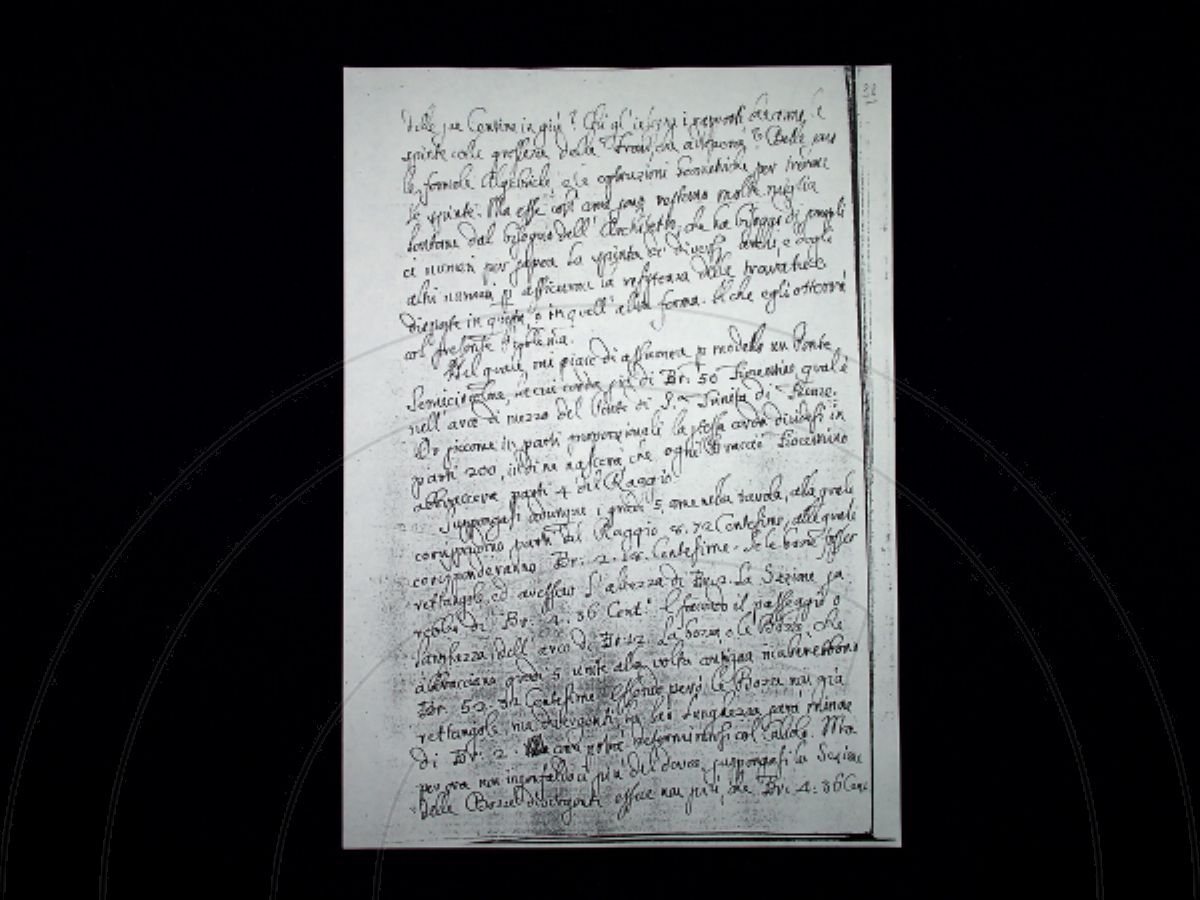 38
delle sue Centine in giù? Chi gl'insegna i
spinte colle grossezze delle
le formole Algebriche, e le costruzioni Geometriche per trovare
le spinte. Ma esse così come sono restano molte miglia
lontane dal bisogno dell'Architetto, che ha bisogno di
ci numeri per sapere la spinta de' diversi archi, e degli
altri numeri p assicurare la resistenza delle
disposte in questa, o in quell'altra forma. Il che egli otterrà
col presente Problema.
Nel quale mi piace di assumere p modello un Ponte
Semicircolare, la cui corda sia di Br: 50 Fiorentine, qual è
nell'arco di mezzo del Ponte di S.ª Trinita di
Or siccome in parti proporzionali la stessa corda dividesi in
parti 200, indi ne nascerà che ogni Braccio Fiorentino
abbraccerà parti 4 del Raggio.
Suppongasi adunque i gradi 5 come nella tavola, alla quale
corrispondono parti del Raggio 8.72 Centesime, alle quali
corrisponderanno Br: 2.18. Centesime. Se le
rettangole, ed avessero l'altezza di Br: 2. La Sezione sa
rebbe di Br: 4.36 Cent.e E facendo il passaggio o
l'ampiezza dell'arco di Br: 12. La bozza, o le Bozze, che
abbracciano gradi 5 unite alla volta
Br: 52.32 Centesime. Essendo però le Bozze non già
rettangole, ma divergenti, la loro lunghezza sarà minore
di Br: 2. come potrà determinarsi col Calcolo. Ma
per ora non più del dovere, suppongasi la Sezione
delle Bozze divergenti essere non più, che Br: 4.36 Cent